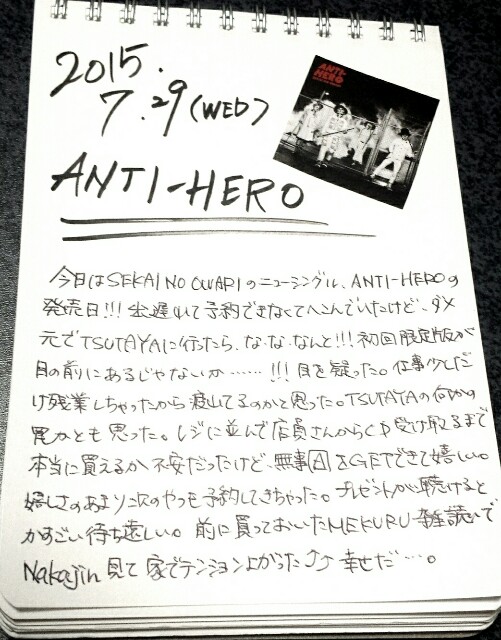 2015.
7.29(WED)
ANTI-HERO
ANTI-
HERO
今日はSEKAI NO OWARIのニューシングル、ANTI-HEROの
発売日!!! 出遅れて予約できなくてへこんでいたけど、ダメ
元でTSUTAYAに行ったら、な・な・なんと!!! 初回限定版が
目の前にあるじゃないか……!!! 目を疑った。仕事少しだ
け残業しちゃったから疲出てるのかと思った。TSUTAYAの何かの
罠かとも思った。レジに並んで店員さんからCD受け取るまで
本当に買えるか不安だったけど、無事AをGETできて嬉しい。
嬉しさのあまり次のやつも予約してきちゃった。プレゼントが聴けると、
かすごい待ち遠しい。前に買っておいたMEKURU 雑読いで
Nakajin 見て家でテンション上がった⤴⤴ 幸せだ…。